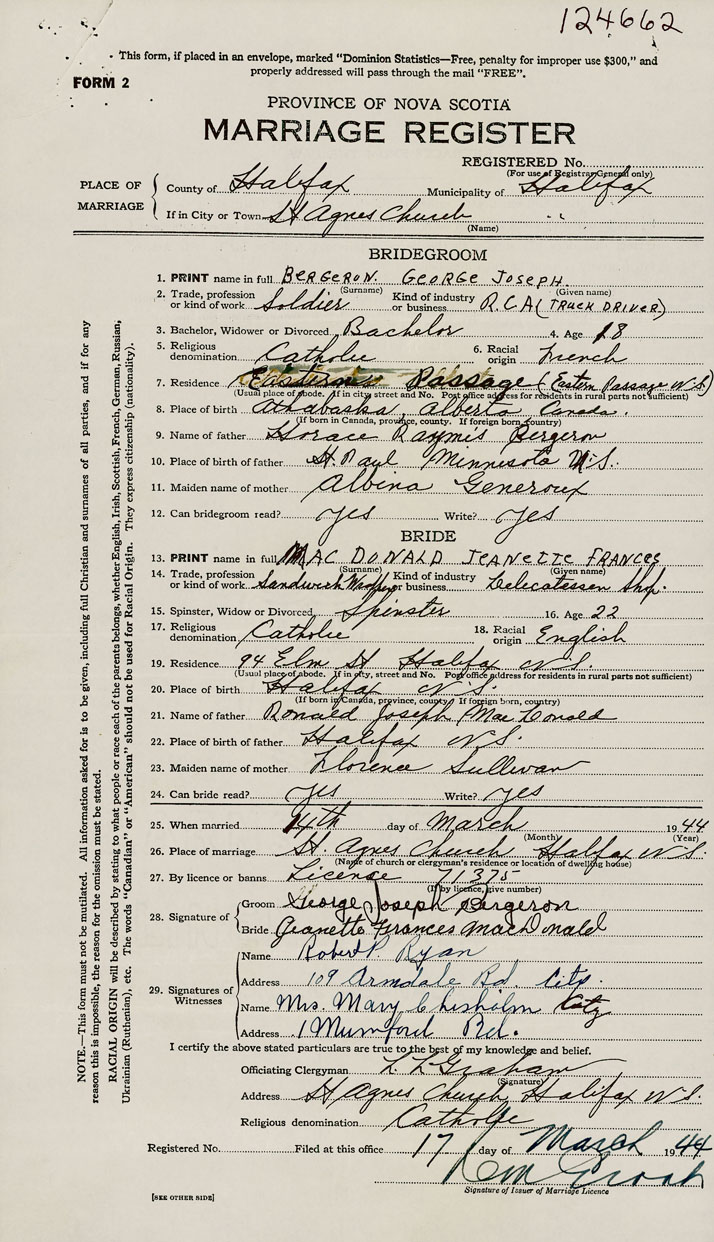 124662
This form, if placed in an envelope, marked "Dominion Statistics—Free, penalty for improper use $300," and
properly addressed will pass through the mail "FREE".
FORM 2
PROVINCE OF NOVA SCOTIA
MARRIAGE REGISTER
REGISTERED No.
(For use of Registrar General only)
PLACE OF MARRIAGE
County of Halifax Municipality of Halifax
If in City or Town St Agnes Church "
(Name)
BRIDEGROOM
1. PRINT name in full BERGERON. GEORGE JOSEPH.
(Surname) (Given name)
2. Trade, profession or kind of work Soldier Kind of industry or business R.C.A (TRUCK DRIVER)
3. Bachelor, Widower or Divorced Bachelor 4. Age 18
5. Religious denomination Catholic 6. Racial origin French
7. Residence Eastern Passage (Eastern Passage N.S)
(Usual place of abode. If in city, street and No. Post office address for residents in rural parts not sufficient)
8. Place of birth Athabaska, Alberta Canada.
(If born in Canada, province, county. If foreign born, country)
9. Name of father Horace Raymis Bergeron
10. Place of father St. Paul Minnesota U.S.
11. Maiden name of mother Albina Generoux
12. Can bridegroom read? yes Write? yes
BRIDE
13. PRINT name in full MAC DONALD JEANETTE FRANCES
(Surname) (Given name)
14. Trade, profession or kind of work Sandwich Wrapper Kind of industry or business Delicatessen Shop.
15. Spinster, Widow or Divorced Spinster 16. Age 22
17. Religious denomination Catholic 18. Racial origin English
19. Residence 94 Elm St Halifax N.S.
(Usual place of abode. If in city, street and No. Post office address for residents in rural parts not sufficient)
20. Place of birth Halifax N.S.
(If born in Canada, province, county. If foreign born, country)
21. Name of father Ronald Joseph MacDonald
22. Place of birth of father Halifax N.S.
23. Maiden name of mother Florence Sullivan
24. Can bride read? yes Write? yes
25. When married 14th day of March 1944
(Month) (Year)
26. Place of marriage St. Agnes Church Halifax N.S.
(Name of church or clergyman's residence or location of dwelling house)
27. By licence or banns License 71375
(If by licence, give number)
28. Signature of
Groom George Joseph Bergeron
Bride Jeanette Frances MacDonald
29. Signatures of Witnesses
Name Robert P. Ryan
Address 109 Armdale Rd. City.
Name Mrs. Mary Chisholm City
Address 1 Mumford Rd.
I certify the above stated particulars are true to the best of my knowledge and belief.
Officiating Clergyman L. L. Graham
(Signature)
Address St Agnes Church, Halifax N.S.
Religious denomination Catholic
Registered No. Filed at this office 17 day of March 1944
Signature of Issuer of Marriage Licence
[SEE OTHER SIDE]
NOTE.—This form must not be mutilated. All information asked for is to be given, including full Christian and surnames of all parties, and if for any
reason this is impossible, the reason for the omission must be stated.
RACIAL ORIGIN will be described by stating to what people or race each of the parents belongs, whether English, Irish, Scottish, French, German, Russian,
Ukrainian (Ruthenian), etc. The words "Canadian" or "American" should not be used for Racial Origin. They express citizenship (nationality).